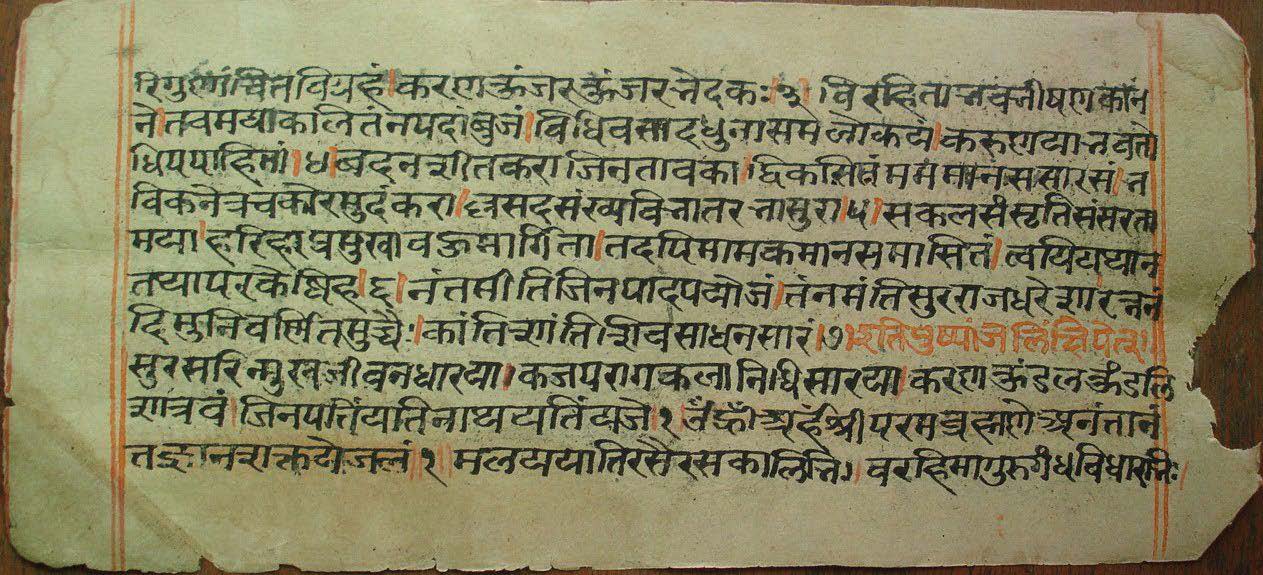 रिगुणांचितविग्रहं।करणकुंजरकुंजरनेदकः।४। विरहितानवनीषणकान
ने।तवमयाकलितंनपदांबुजं।विधिवसादधुनासमलोकये।करुणयानवतो
धिपपाहिमां। ध।वदनशीतकराजिनतावका।द्विकसितंमममानससारसं।न
विकनेत्रचकोरमुदंकरा।लसदसंख्यविनातरनासुरा।५।सकलसंसृतिसंसरता
मया।हरिहराप्रमुखावऊमार्गिता।तदपिमामकमानसमासितं।त्वयियथान
तथापरकेष्टिह।६। नंतमीतिजिनपादपयोजं।तंनमंतिसुरराजधरेशारत्ननं
दिमुनिवर्णितमुच्चैः।कांतिशांतिशिवसाधनसारं।७।इतिपुष्पांजलिंक्षिपेत्॥
सुरसरिन्मुखजीवनधारया।कजपरागकलानिधिसारया।करणकुंडलकुंडलि
शात्रवं।जिनपतिंयतिनाथयतिंयजे१ उँह्रीँअर्हँश्रीपरमब्रह्मणेअनंतानं
तज्ञानशक्तयेजलं।१ मलययातिरसैरसकालिनि। वरहिमागुरुगंधविधारनिः